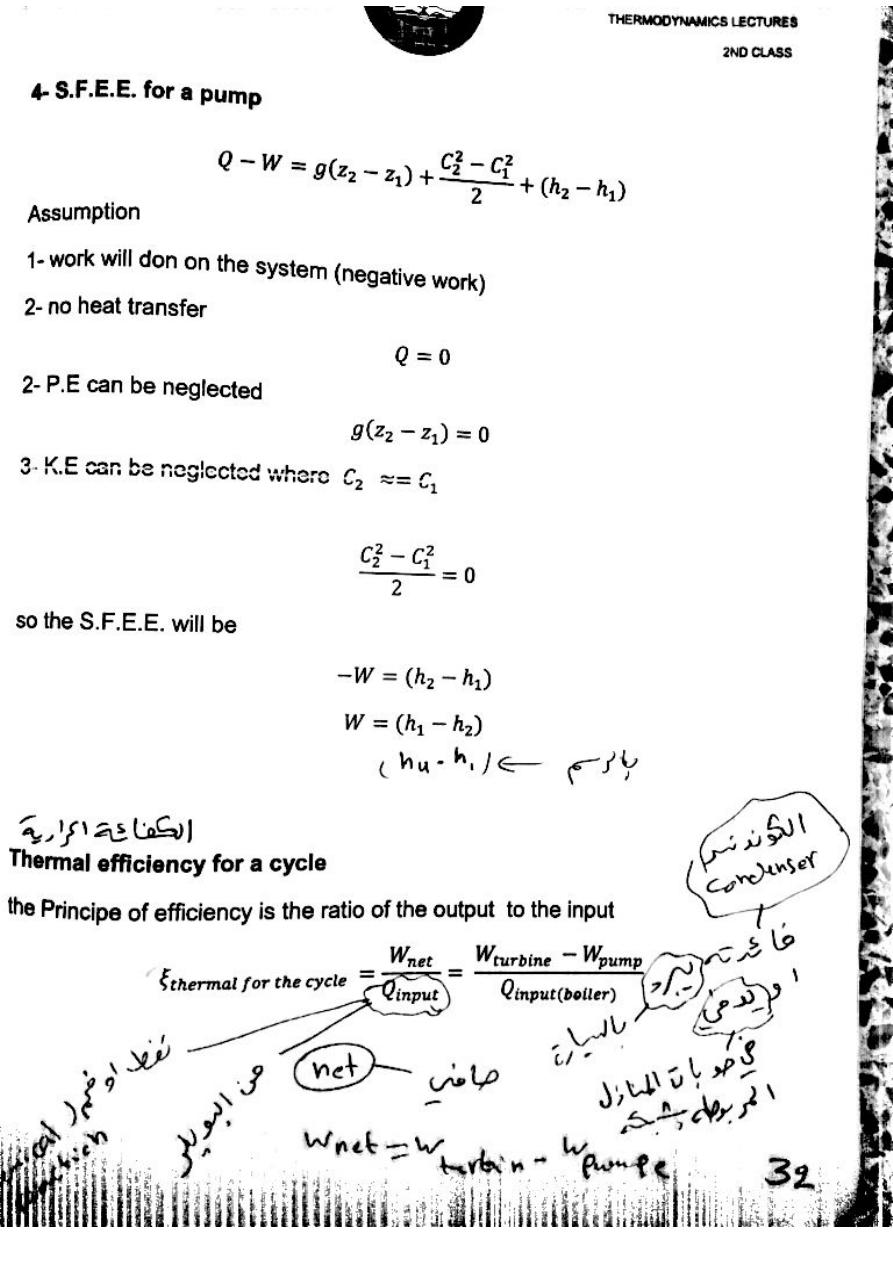 THERMODYNAMICS LECTURES
2ND CLASS
4- S.F.E.E. for a pump
Q − W = g(z₂ − z₁) + (C₂² − C₁²)/2 + (h₂ − h₁)
Assumption
1- work will don on the system (negative work)
2- no heat transfer
Q = 0
2- P.E can be neglected
g(z₂ − z₁) = 0
3- K.E can be neglected where C₂ ≈= C₁
(C₂² − C₁²)/2 = 0
so the S.F.E.E. will be
−W = (h₂ − h₁)
W = (h₁ − h₂)
(h4 - h1) ← بالرسم
الكفاءة الحرارية
Thermal efficiency for a cycle
الكوندنسر
Condenser
the Principe of efficiency is the ratio of the output to the input
ξthermal for the cycle = Wnet/Qinput = (Wturbine − Wpump)/Qinput(boiler)
فائدته
يبرد
او يدفي
بالسيارة
في صوبات المنازل
المربوطة
نفط او فحم
من البويلر
net صافي
Wnet = Wturbin - Wpumpe
32